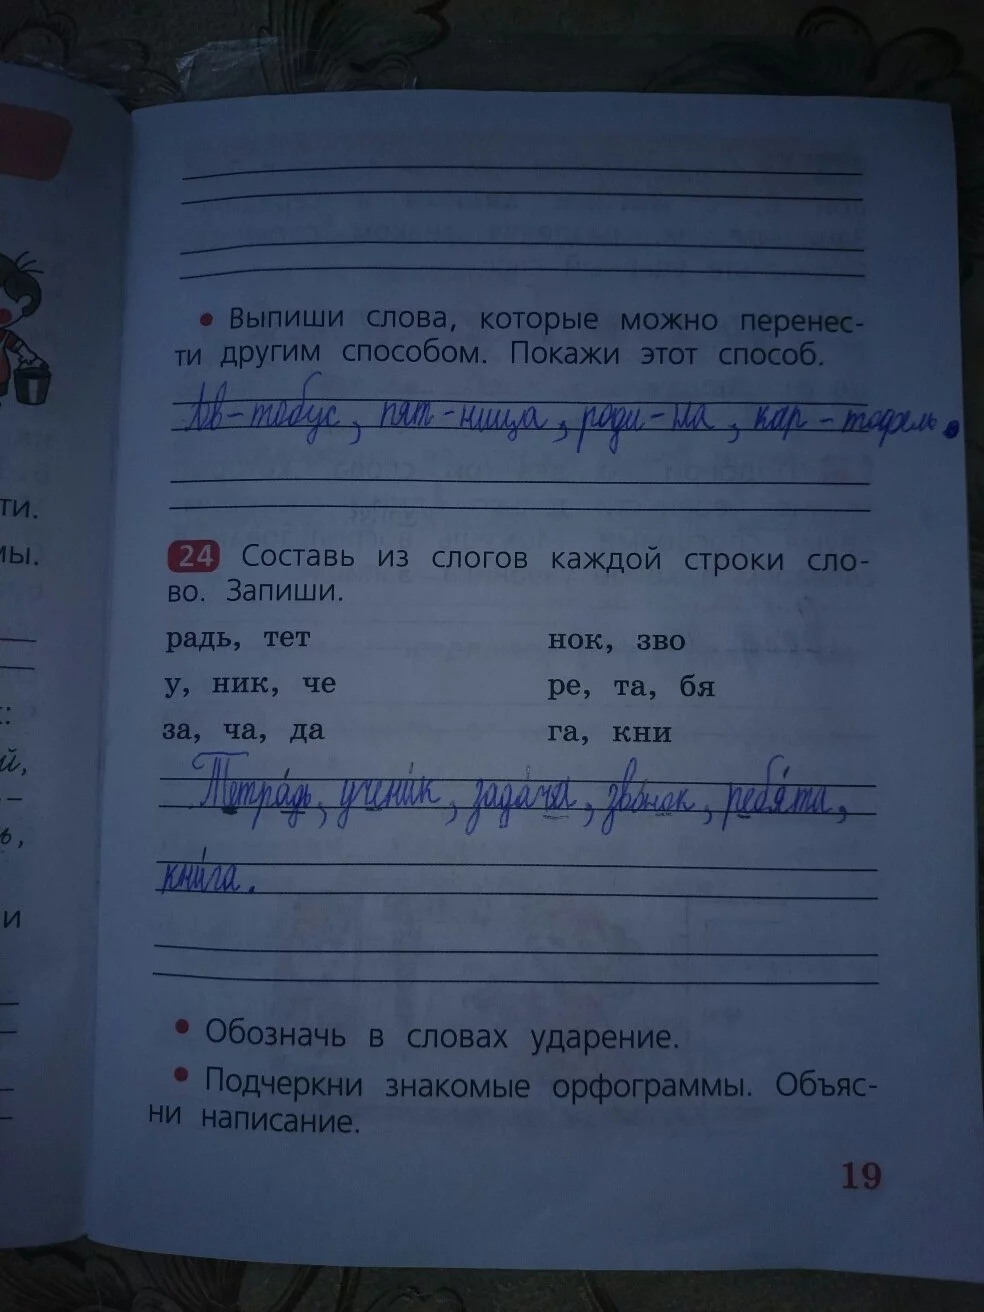 • Выпиши слова, которые можно перенес-
ти другим способом. Покажи этот способ.
Ав-тобус, пят-ница, роди-на, кар-тофель.
24 Составь из слогов каждой строки сло-
во. Запиши.
радь, тет нок, зво
у, ник, че ре, та, бя
за, ча, да га, кни
Тетра́дь, учени́к, зада́ча, звоно́к, ребя́та,
кни́га.
• Обозначь в словах ударение.
• Подчеркни знакомые орфограммы. Объяс-
ни написание.
19
ти.
мы.
:
й,
–
ь,
и